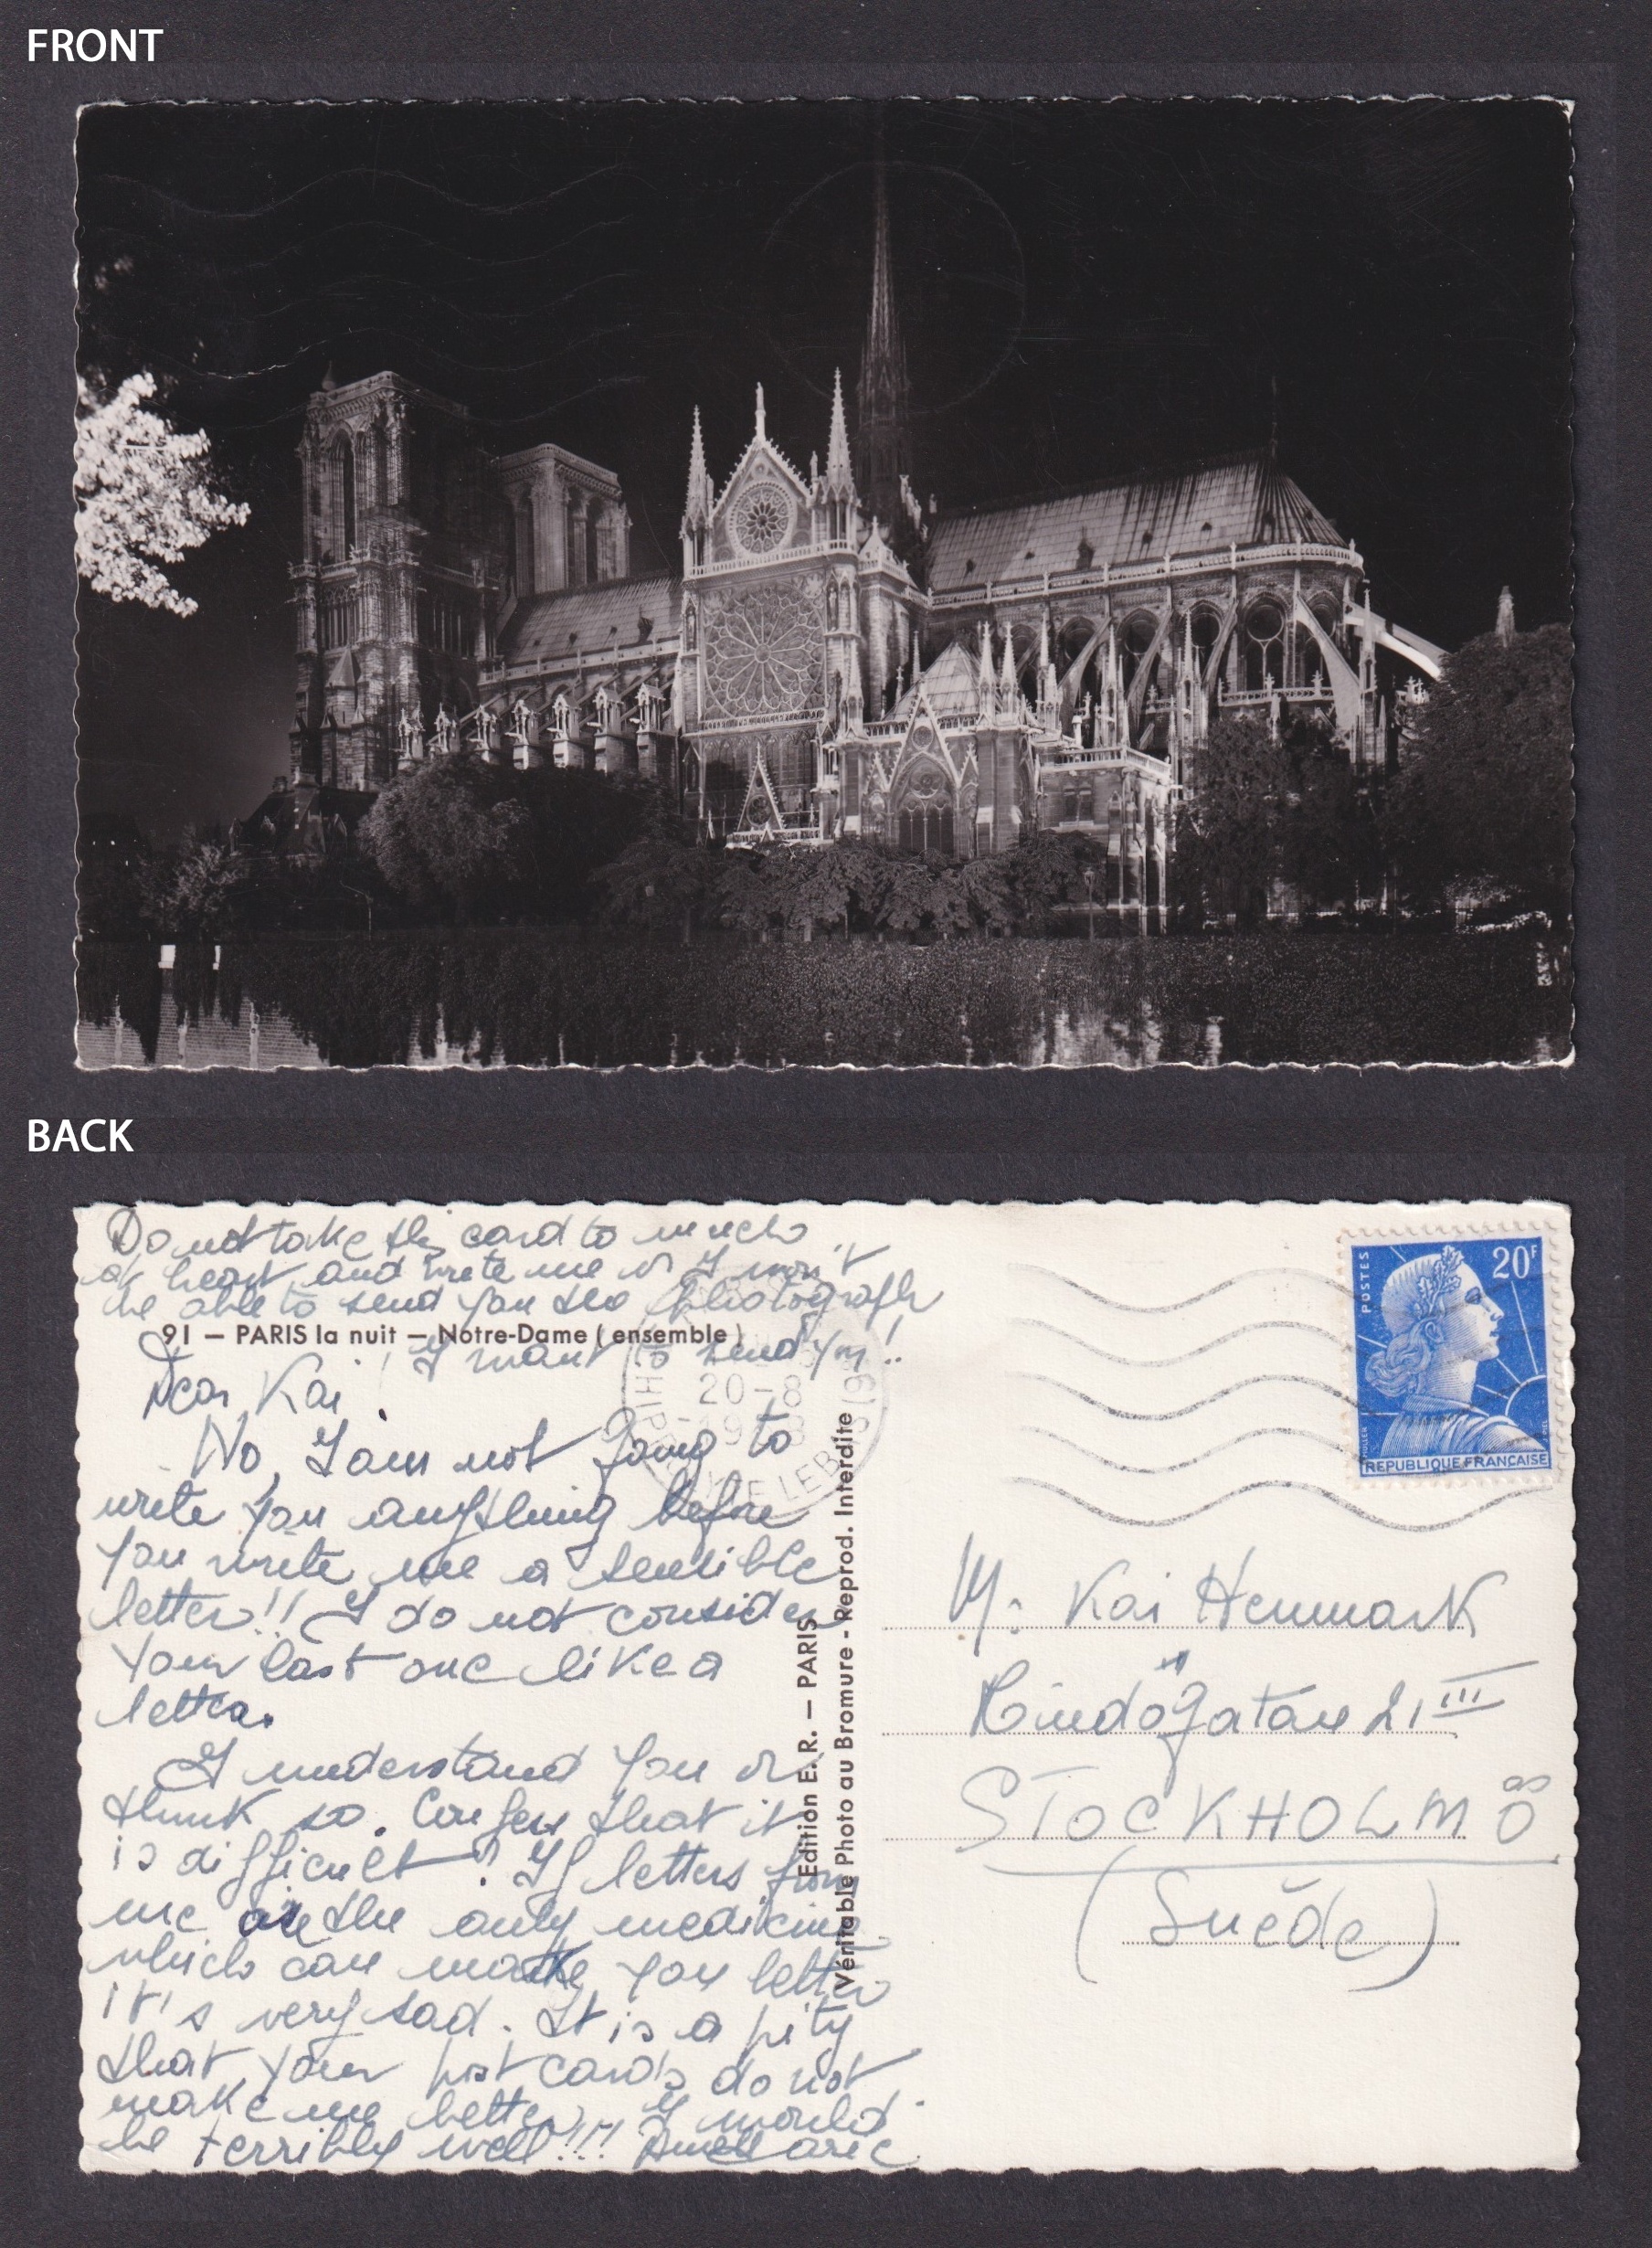 FRONT
BACK
Do not take this card to much
at heart and write me or I won't
be able to send you the photograph
I want to send you!!
91 — PARIS la nuit — Notre-Dame ( ensemble )
Dear Kai!
No, I am not going to
write you anything before
you write me a sensible
letter!! I do not consider
your last one like a
letter.
I understand you or
think so. Confess that it
is difficult! If letters from
me are the only medicine
which can make you better
it's very sad. It is a pity
that your post cards do not
make me better, I would
be terribly well!!!
Edition E. R. — PARIS
Véritable Photo au Bromure - Reprod. Interdite
20-8
POSTES
20F
MULLER
REPUBLIQUE FRANÇAISE
M. Kai Henmark
21 III
STOCKHOLM Ö
(Suède)